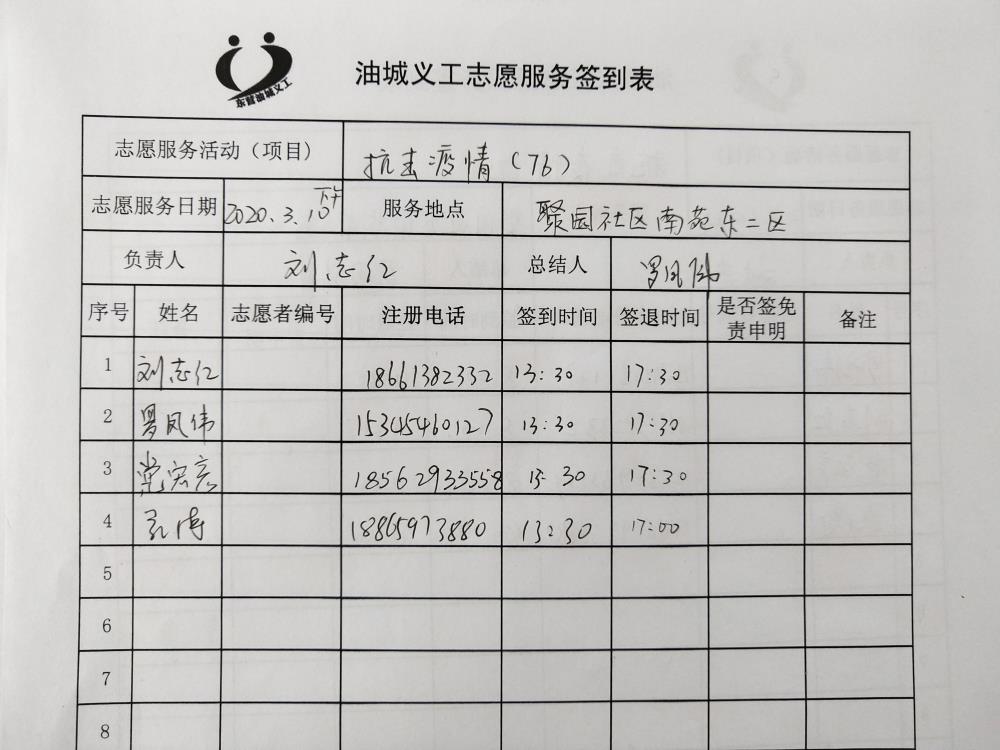 东营油城义工
油城义工志愿服务签到表
志愿服务活动（项目） 抗击疫情（76）
志愿服务日期 2020.3.10 下午 服务地点 聚园社区南苑东二区
负责人 刘志红 总结人 罗凤伟
序号 姓名 志愿者编号 注册电话 签到时间 签退时间 是否签免责申明 备注
1 刘志红 18661382332 13:30 17:30
2 罗凤伟 15345460127 13:30 17:30
3 18562933558 13:30 17:30
4 18865973880 13:30 17:00
5
6
7
8